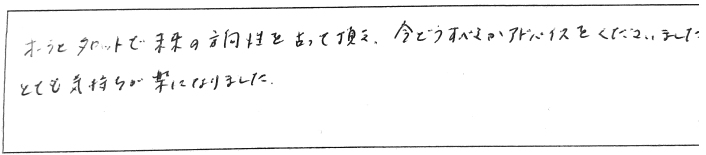 オーラとタロットで未来の方向性を占って頂き、今どうすべきかアドバイスをくださいました
とても気持ちが楽になりました。